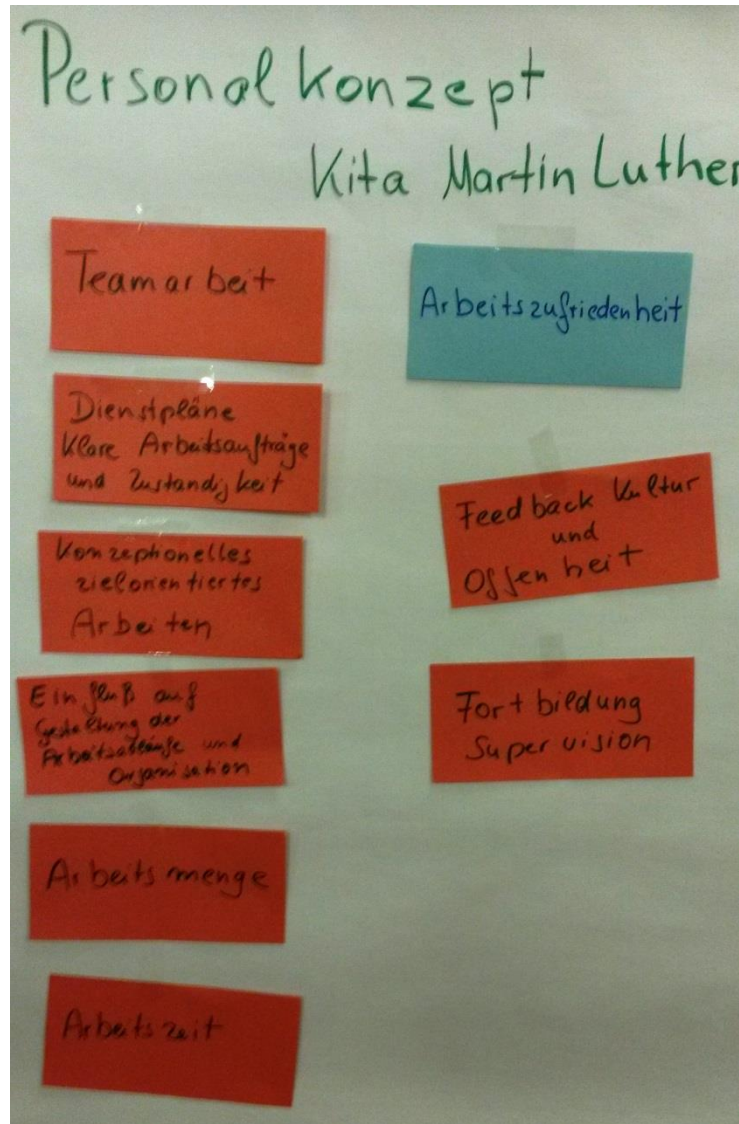 Personalkonzept
Kita Martin Luther
Teamarbeit
Dienstpläne
Klare Arbeitsaufträge
und Zuständigkeit
Konzeptionelles
zielorientiertes
Arbeiten
Einfluß auf
Gestaltung der
Arbeitsabläufe und
Organisation
Arbeitsmenge
Arbeitszeit
Arbeitszufriedenheit
Feedback Kultur
und
Offenheit
Fortbildung
Supervision